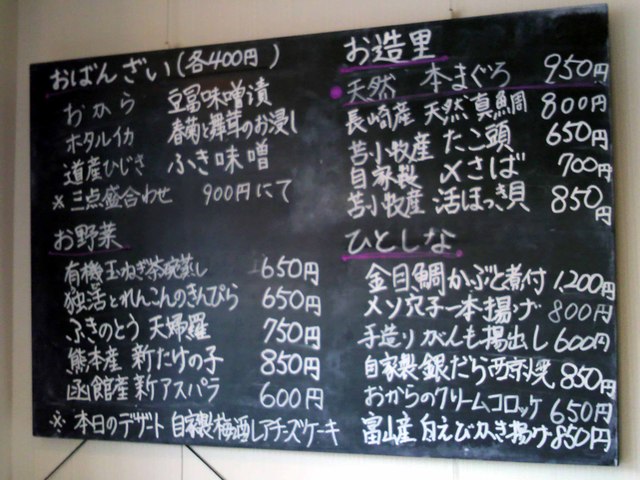 おばんざい(各400円)
おから 豆冨味噌漬
ホタルイカ 春菊と舞茸のお浸し
道産ひじき ふき味噌
※三点盛合わせ 900円にて
お野菜
有機玉ねぎ茶碗蒸し 650円
独活とれんこんのきんぴら 650円
ふきのとう 天婦羅 750円
熊本産 新たけの子 850円
函館産新アスパラ 600円
※本日のデザート 自家製梅酒レアチーズケーキ
お造里
●天然 本まぐろ 950円
長崎産 天然真鯛 800円
苫小牧産 たこ頭 650円
自家製 〆さば 700円
苫小牧産 活ほっき貝 850円
ひとしな
金目鯛かぶと煮付 1,200円
メソ穴子一本揚げ 800円
手造りがんも揚出し 600円
自家製銀だら西京焼 850円
おからのクリームコロッケ 650円
富山産 白えびかき揚げ 850円